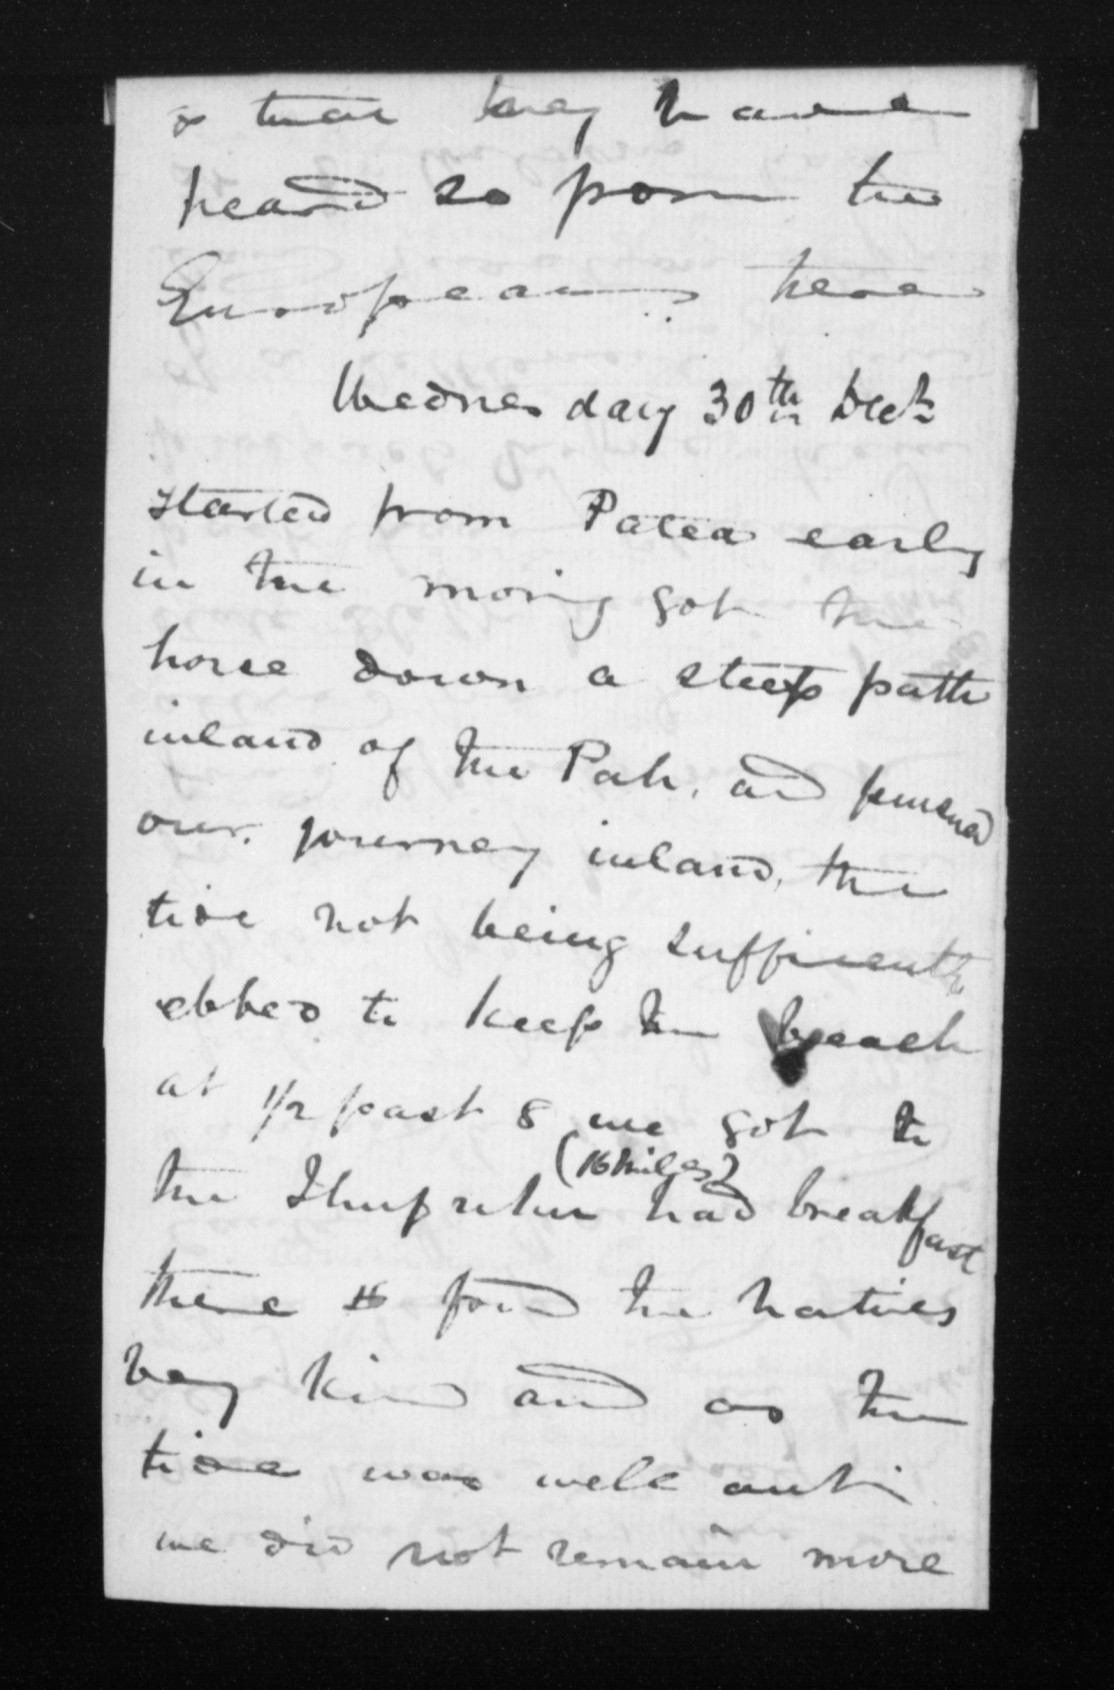 & that they have
heard so from the
Europeans here
Wednesday 30th Decr
started from Patea early
in the morng got the
horse down a steep path
inland of the Pah, and pursued
our journey inland, the
tide not being sufficiently
ebbed to keep the beach
at 1/2 past 8 we got to
(16 miles)
the had breakfast
there found the natives
very kind and as the
tide was well out
we did not remain more